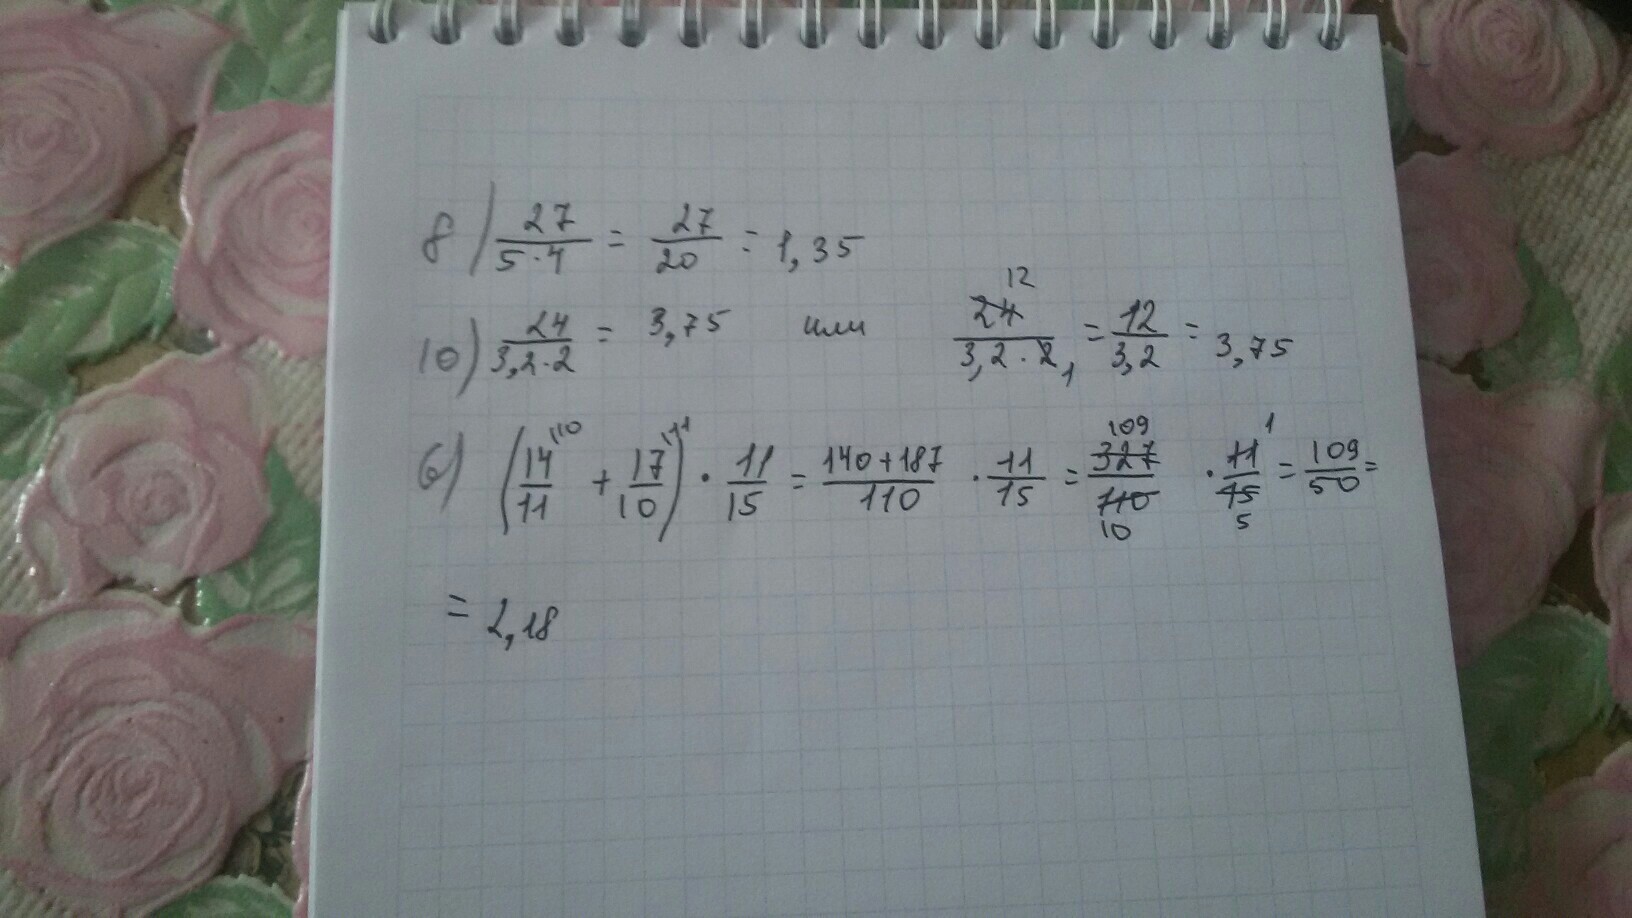 8) 27/(5·4) = 27/20 = 1,35
10) 24/(3,2·2) = 3,75 или 24^12/(3,2·2_1) = 12/3,2 = 3,75
6) (14/11^\10 + 17/10^\11) · 11/15 = (140+187)/110 · 11/15 = 327^109/110_10 · 11^1/15_5 = 109/50 =
= 2,18